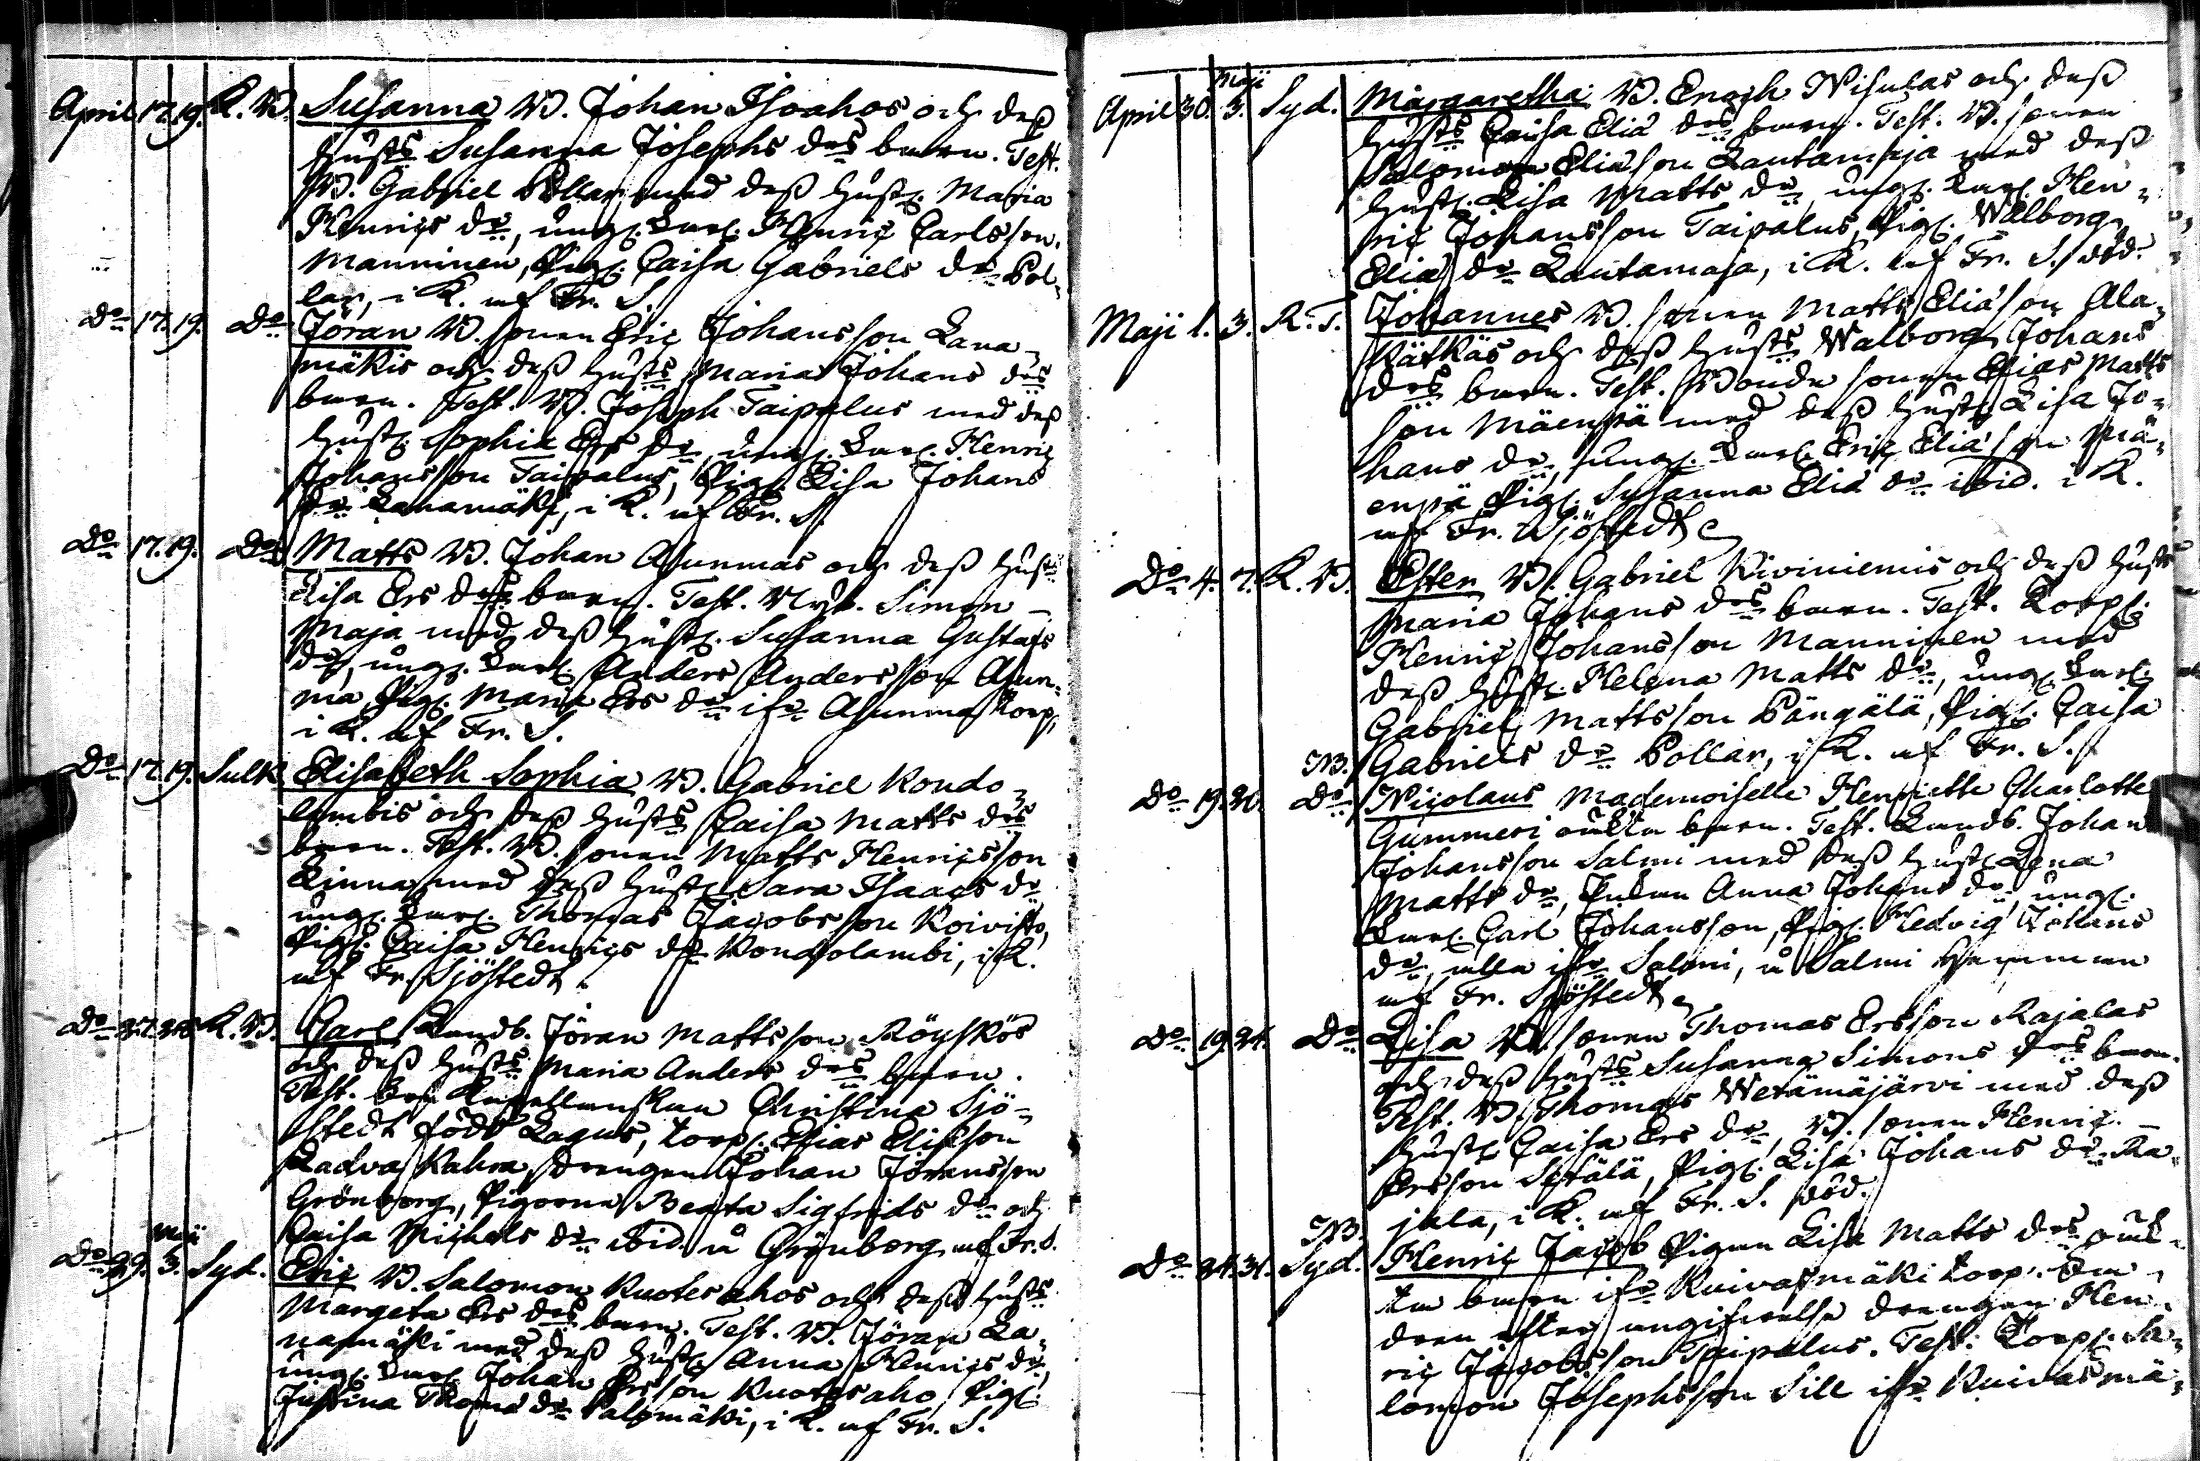 April 17. 19. K. W. Susanna W. Johan Isoahos och deß
hust:s Susanna Josephs d:rs barn. Test.
W. Gabriel Pollar med deß hust. Maria
Henrics d:r, ung. karl. Henric Carlsson
Manninen, Pig. Caisa Gabriels d:r Pol-
lar, i K. af Fr. S.
D:o 17. 19. D:o Jöran W. sonen Eric Johansson Lana-
mäkis och deß hust:s Maria Johans d:rs
barn. Test. W. Joseph Taipalus med deß
hust. Sophia Ers d:r, ung. karl. Henric
Johansson Taipalus, Pig. Lisa Johans
d:r Lanamäki, i K. af Fr. S.
D:o 17. 19. D:o Matts W. Johan Asunmas och deß hust:s
Lisa Ers d:rs barn. Test. Simon
Maja med deß hust. Susanna Gustafs
d:r, ung. karl. Anders Andersson Asun-
ma, Pig. Maria Ers d:r ifr. Asunma Torp,
i K. af Fr. S.
D:o 17. 19. Sulk. Elisabeth Sophia W. Gabriel Kondo-
lambis och deß hust:s Caisa Matts d:rs
barn. Test. W. sonen Matts Henricsson
Linna med deß hust. Sara Isaacs d:r
ung. karl. Thomas Jacobsson Koivisto,
Pig. Caisa Henrics d:r Kondolambi, i K.
af Fr. Sjöstedt.
D:o 27. 28. K. W. Carl Landb. Jöran Mattsson Röyskös
och deß hust:s Maria Anders d:rs barn.
Test. Christina Sjö-
stedt född Lagus, torp. Elias Eliasson
Ladvas Kahra, drengen Johan Jöransson
Grönberg, Pigorna Beata Sigfrids d:r och
Caisa Michels d:r ibid. å Grönberg af Fr. S.
Maji
D:o 29. 3. Syd. Eric W. Salomon Kuotesahos och deß hust:s
Margeta Ers d:rs barn. Test. W. Jöran La-
namäki med deß hust. Anna Henrics d:r,
ung. karl. Johan Ersson Kuotesaho, Pig.
Justina Thomæ d:r Palomäki, i K. af Fr. S.
Maji
April 30. 3. Syd. Margaretha W. Enoch Nisulas och deß
hust:s Caisa Eliæ d:rs barn. Test. W. sonen
Salomon Eliæson Lautamaja med deß
hust. Lisa Matts d:r, ung. karl. Hen-
ric Johansson Taipalus, Pig. Walborg
Eliæ d:r Lautamaja, i K. af Fr. S. död.
Maji 1. 3. R. T. Johannes W. sonen Matts Eliæson Ala-
Kätkäs och deß hust:s Walborg Johans
d:rs barn. Test. Bonde sonen Elias Matts
son Mäenpä med deß hust. Lisa Jo-
hans d:r, ung. karl. Eric Eliæson Mä-
enpä Pig. Susanna Eliæ d:r ibid. i K.
af Fr. Sjöstedt
D:o 4. 7. K. W. Ester W. Gabriel Kiviniemis och deß hust:s
Maria Johans d:rs barn. Test. Torp.
Henric Johansson Manninen med
deß hust. Helena Matts d:r, ung. karl.
Gabriel Mattsson Pängälä, Pig. Caisa
Gabriels d:r Pollar, i K. af Fr. S.
NB.
D:o 19. 20. D:o Nicolaus Mademoiselle Henriette Charlotte
Gummeri oäkta barn. Test. Landb. Johan
Johansson Salmi med deß hust. Lena
Matts d:r, Enkan Anna Johans d:r, ung.
karl. Carl Johansson, Pig. Hedvig Johans
d:r, alla ifr. Salmi, å Salmi Hemman
af Fr. Sjöstedt
D:o 19. 24. D:o Lisa W. sonen Thomas Ersson Rajalas
och deß hust:s Susanna Simons d:rs barn.
Test. W. Thomas Wetämäjärvi med deß
hust. Caisa Ers d:r, W. sonen Henric
Ersson Setälä, Pig. Lisa Johans d:r Ra-
jala, i K. af Fr. S. död.
NB.
D:o 24. 31. Syd. Henric Jacob Pigan Lisa Matts d:rs oäk-
ta barn ifr. Kuivasmäki torp.
dren efter angifvelse drengen Hen-
ric Jacobsson Taipalus. Test. Torp. Sa-
lomon Josephsson Sill ifr. Kuivasmä-